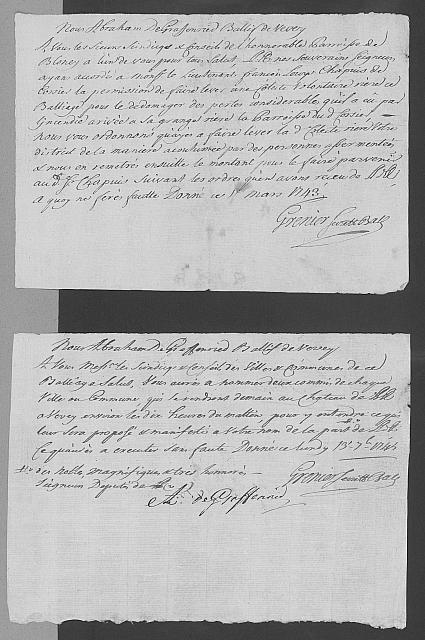 Nous Abraham De Graffenried Ballif de Vevey
A Vous les Sieurs Sindiqs & Conseil de l'honnorable Parroisse de
Blonay a lui de vous pour tous Salut, LL.EE. nos Souverains Seigneurs
ayans accordé a Mons.r le Lieutenant francois Louys Chapuis de
la permission de faire lever une Colete Volontaire riere ce
Balliage pour le dédomager des pertes considerables qu'il a eu par
Incendie arrivée a Sa grange riere la Parroisse
nous vous ordonnons qu'ayés a faire lever la d.e Colete riere Vôtre
district de la maniere acoutumée par des personnes assermentées
& nous en remetrés ensuitte le montant pour le faire parvenir
au d. Sr. Chapuis Suivant les ordres qu'en avons receu de LL.EE.
A quoy ne ferés faute Donné ce 1r mars 1743.
Grenier Secrétt Ball
Nous Abraham De Graffenried Ballif de Vevey
A Vous Mess.rs les Sindiqs & Conseil des Villes & Communes de ce
Balliage Salut, Vous aurés a nommer deux commis de chaque
Ville ou Commune, qui se rendront demain au Chateau de
a Vevey environ les dix heures du mattin pour y entendre ce qui
leur Sera proposé & manifesté a Vôtre nom de la part de LL.EE.
Ce qu'aurés a executer Sans faute Donné ce lundy 13e 7bre 1744
des nobles magnifiques & tres honnorés
Seigneurs Deputés de
Grenier Secrétt Ball
A: de Graffenried